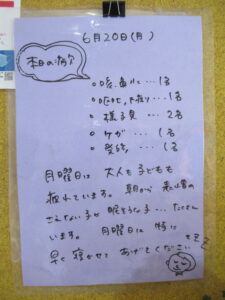 6月20日(月)
本日の病欠
○咳、鼻水…1名
○嘔吐、下痢…1名
○様子見…2名
○ケガ…1名
○発熱…1名
月曜日は 大人も子どもも
疲れています。朝から 表情の
さえない子や 眠そうな子…たくさん
います。 月曜日は 特に
早く 寝かせて あげてください
zzz